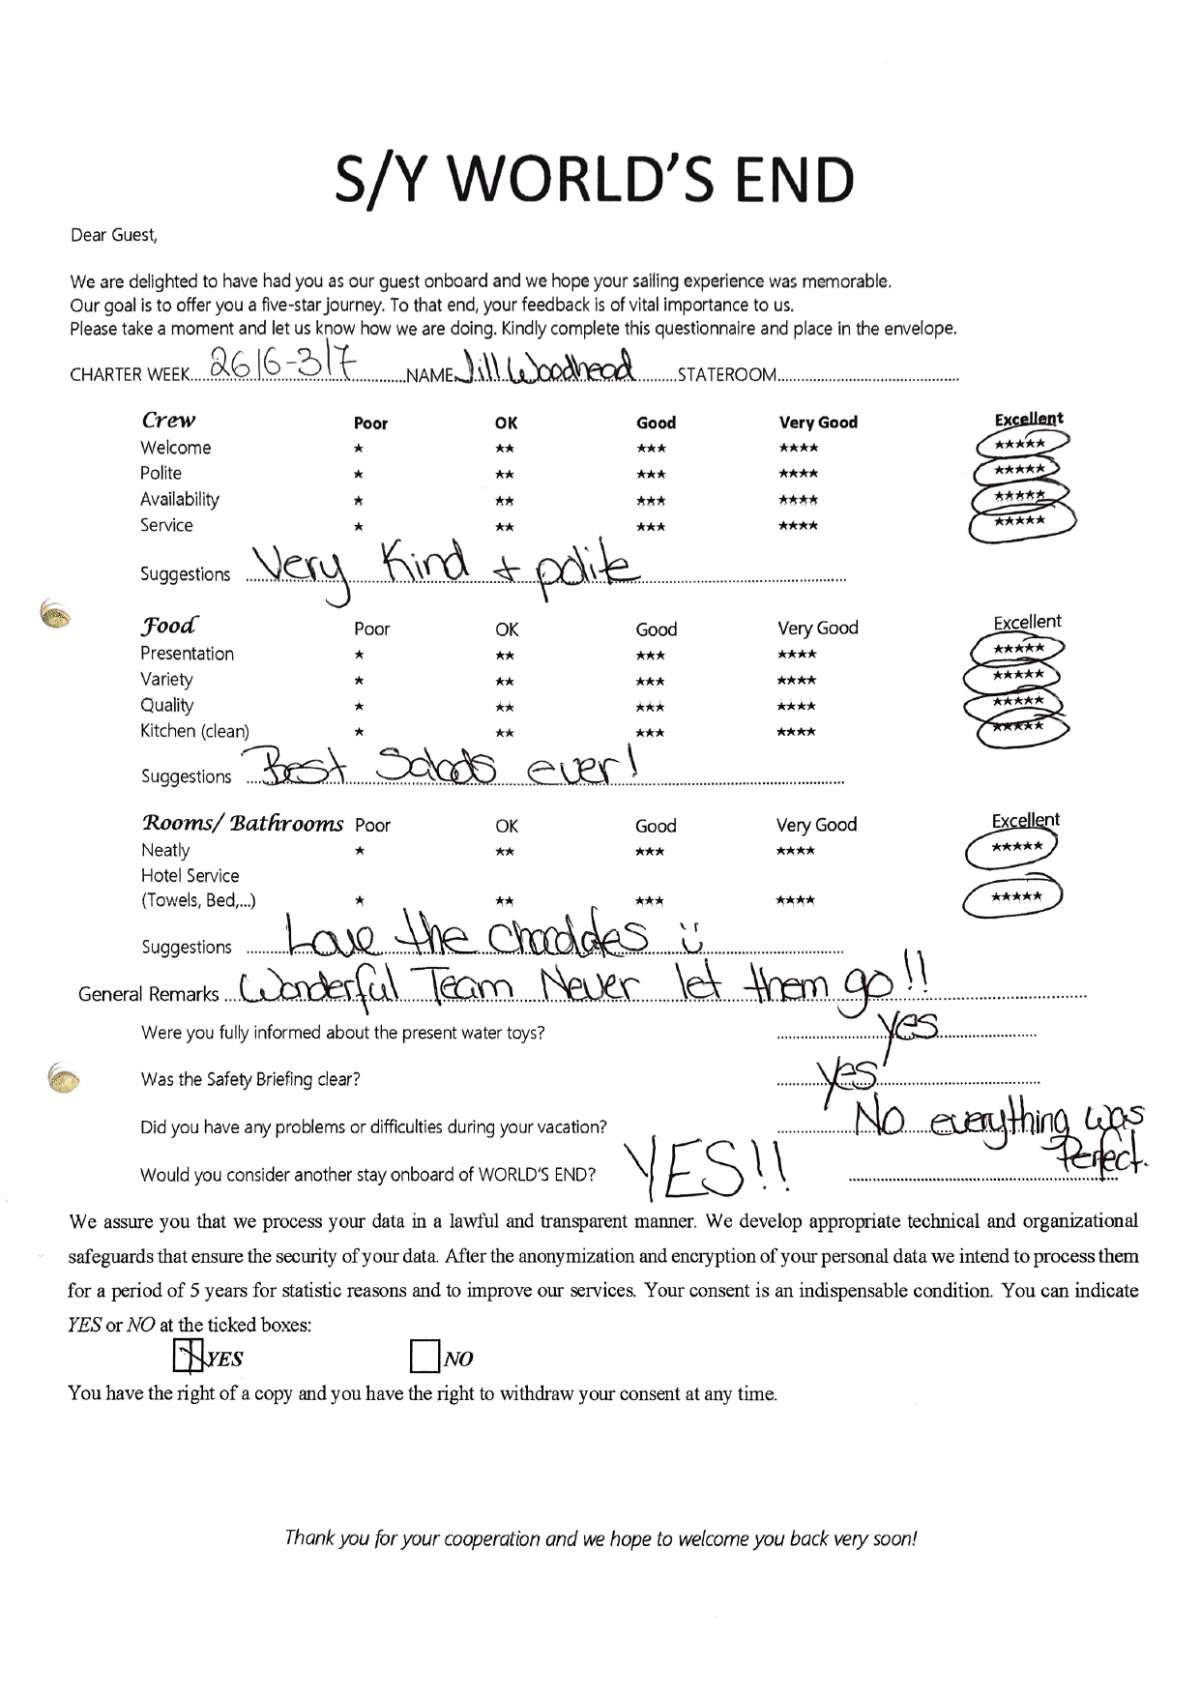 S/Y WORLD'S END
Dear Guest,
We are delighted to have had you as our guest onboard and we hope your sailing experience was memorable.
Our goal is to offer you a five-star journey. To that end, your feedback is of vital importance to us.
Please take a moment and let us know how we are doing. Kindly complete this questionnaire and place in the envelope.
CHARTER WEEK 26/6-3/7 NAME Jill Woodhead STATEROOM
Crew Poor OK Good Very Good Excellent
Welcome ★ ★★ ★★★ ★★★★ ★★★★★
Polite ★ ★★ ★★★ ★★★★ ★★★★★
Availability ★ ★★ ★★★ ★★★★ ★★★★★
Service ★ ★★ ★★★ ★★★★ ★★★★★
Suggestions Very Kind + polite
Food Poor OK Good Very Good Excellent
Presentation ★ ★★ ★★★ ★★★★ ★★★★★
Variety ★ ★★ ★★★ ★★★★ ★★★★★
Quality ★ ★★ ★★★ ★★★★ ★★★★★
Kitchen (clean) ★ ★★ ★★★ ★★★★ ★★★★★
Suggestions Best Salads ever!
Rooms/ Bathrooms Poor OK Good Very Good Excellent
Neatly ★ ★★ ★★★ ★★★★ ★★★★★
Hotel Service
(Towels, Bed,...) ★ ★★ ★★★ ★★★★ ★★★★★
Suggestions Love the chocolates ☺
General Remarks Wonderful Team Never let them go!!
Were you fully informed about the present water toys? yes
Was the Safety Briefing clear? yes
Did you have any problems or difficulties during your vacation? No everything was
Perfect.
Would you consider another stay onboard of WORLD'S END? YES!!
We assure you that we process your data in a lawful and transparent manner. We develop appropriate technical and organizational
safeguards that ensure the security of your data. After the anonymization and encryption of your personal data we intend to process them
for a period of 5 years for statistic reasons and to improve our services. Your consent is an indispensable condition. You can indicate
YES or NO at the ticked boxes:
YES NO
You have the right of a copy and you have the right to withdraw your consent at any time.
Thank you for your cooperation and we hope to welcome you back very soon!